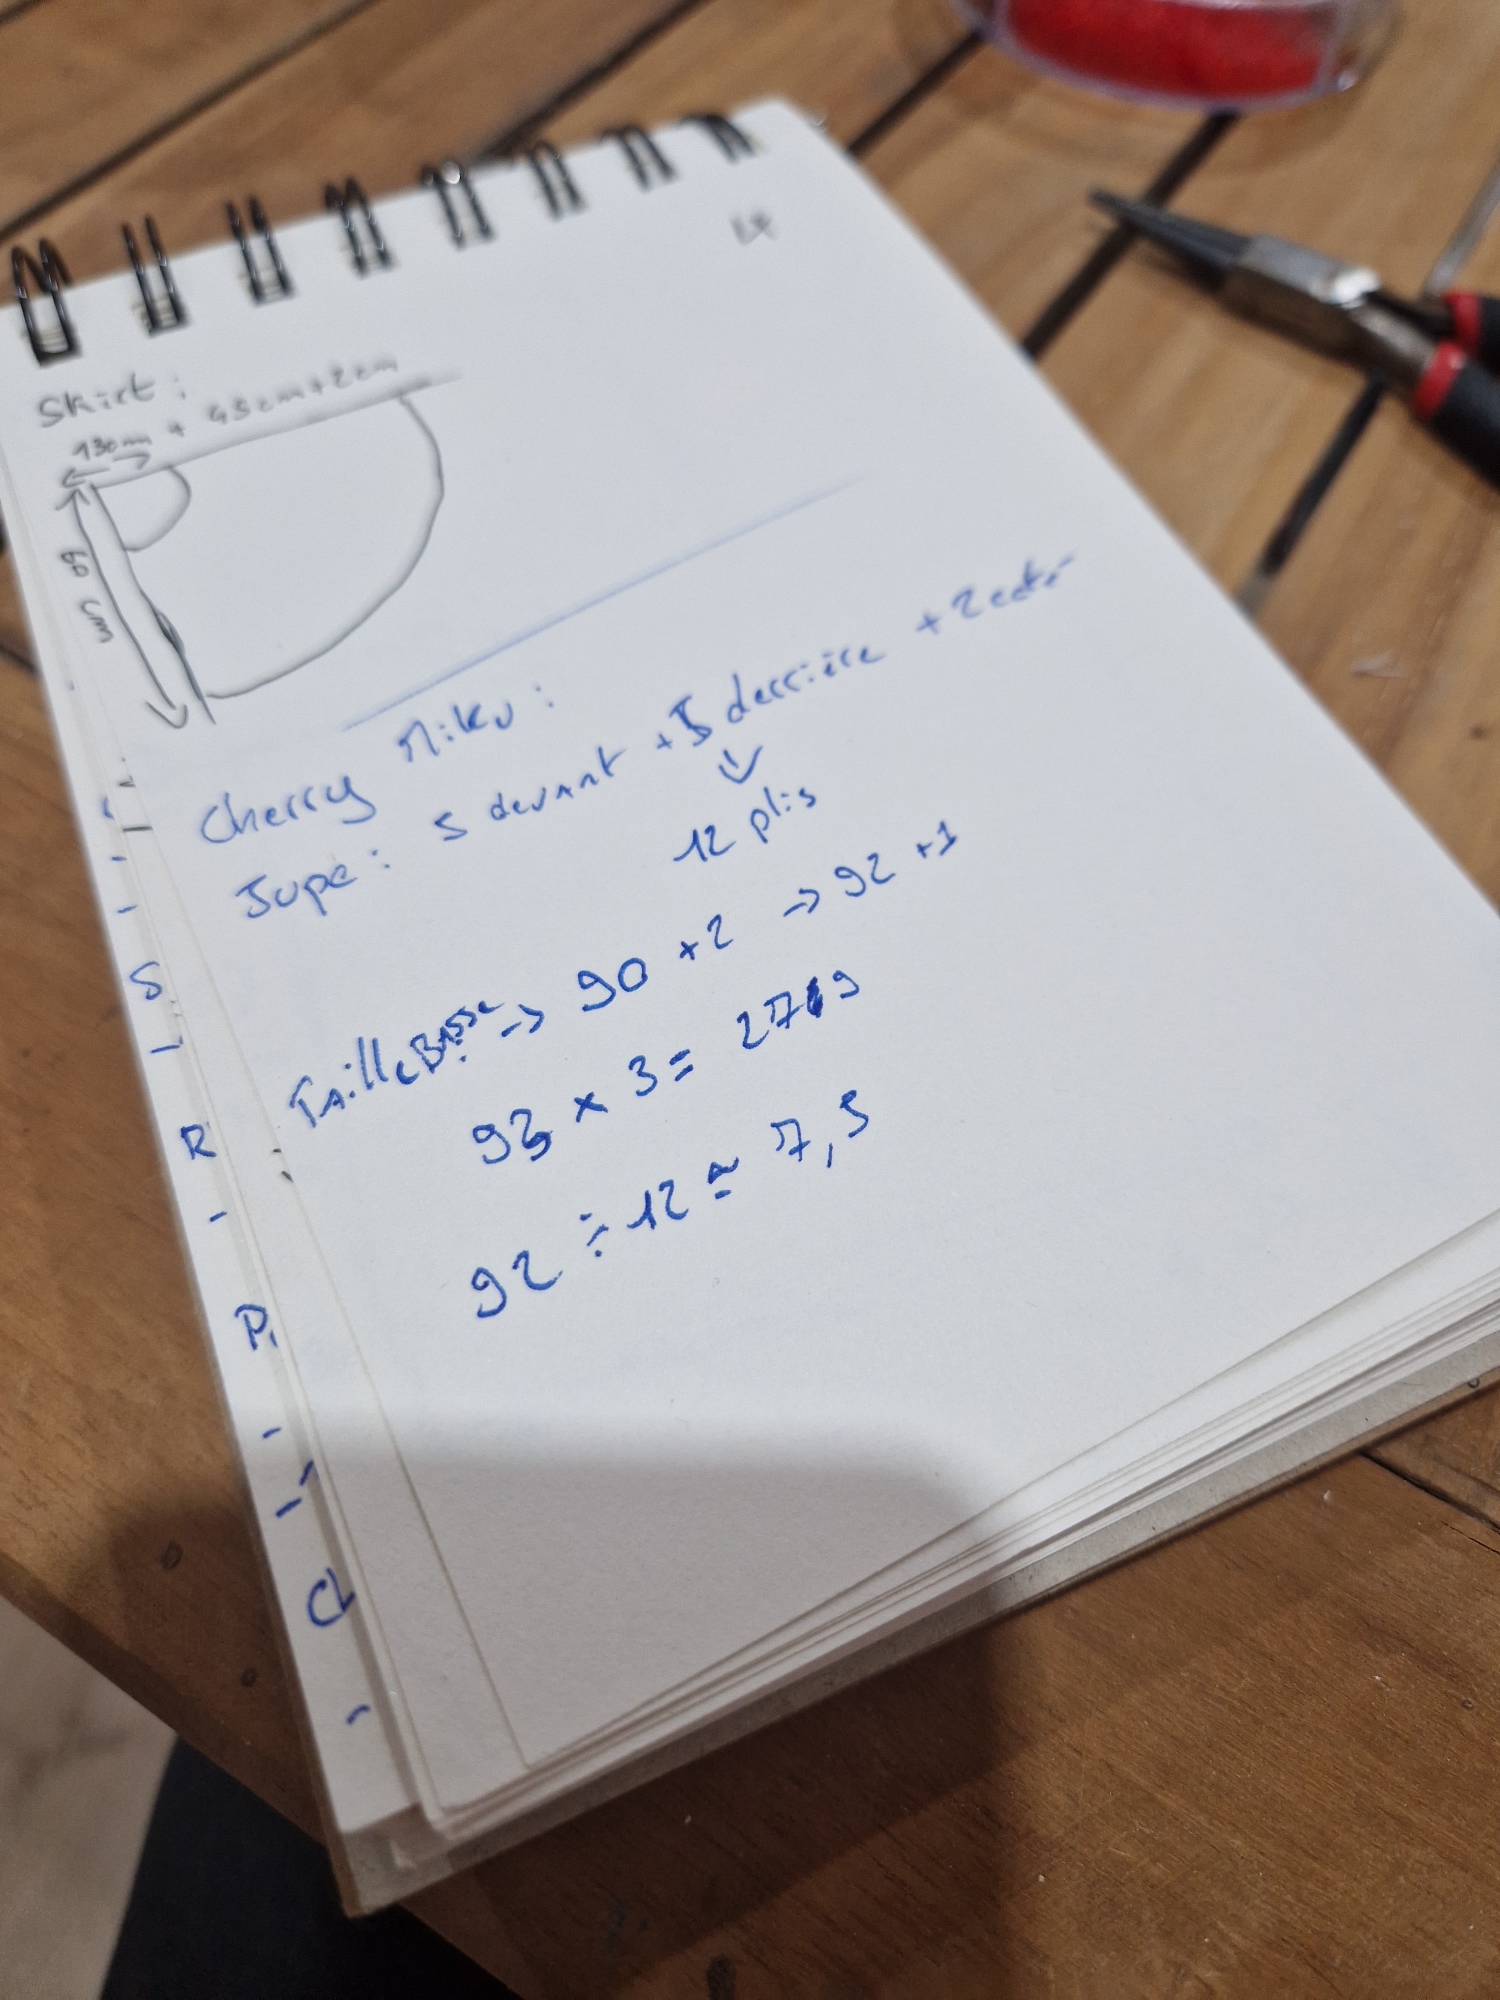 Skirt :
130mm + 45cm+2cm
60 cm
Cherry Miku :
Jupe : 5 devant + 5 derrière + 2 coté
↓
12 plis
Taille Basse -> 90 +2 -> 92 +1
93 x 3 = 279
92 ÷ 12 ≃ 7,5
S
R
P
CL